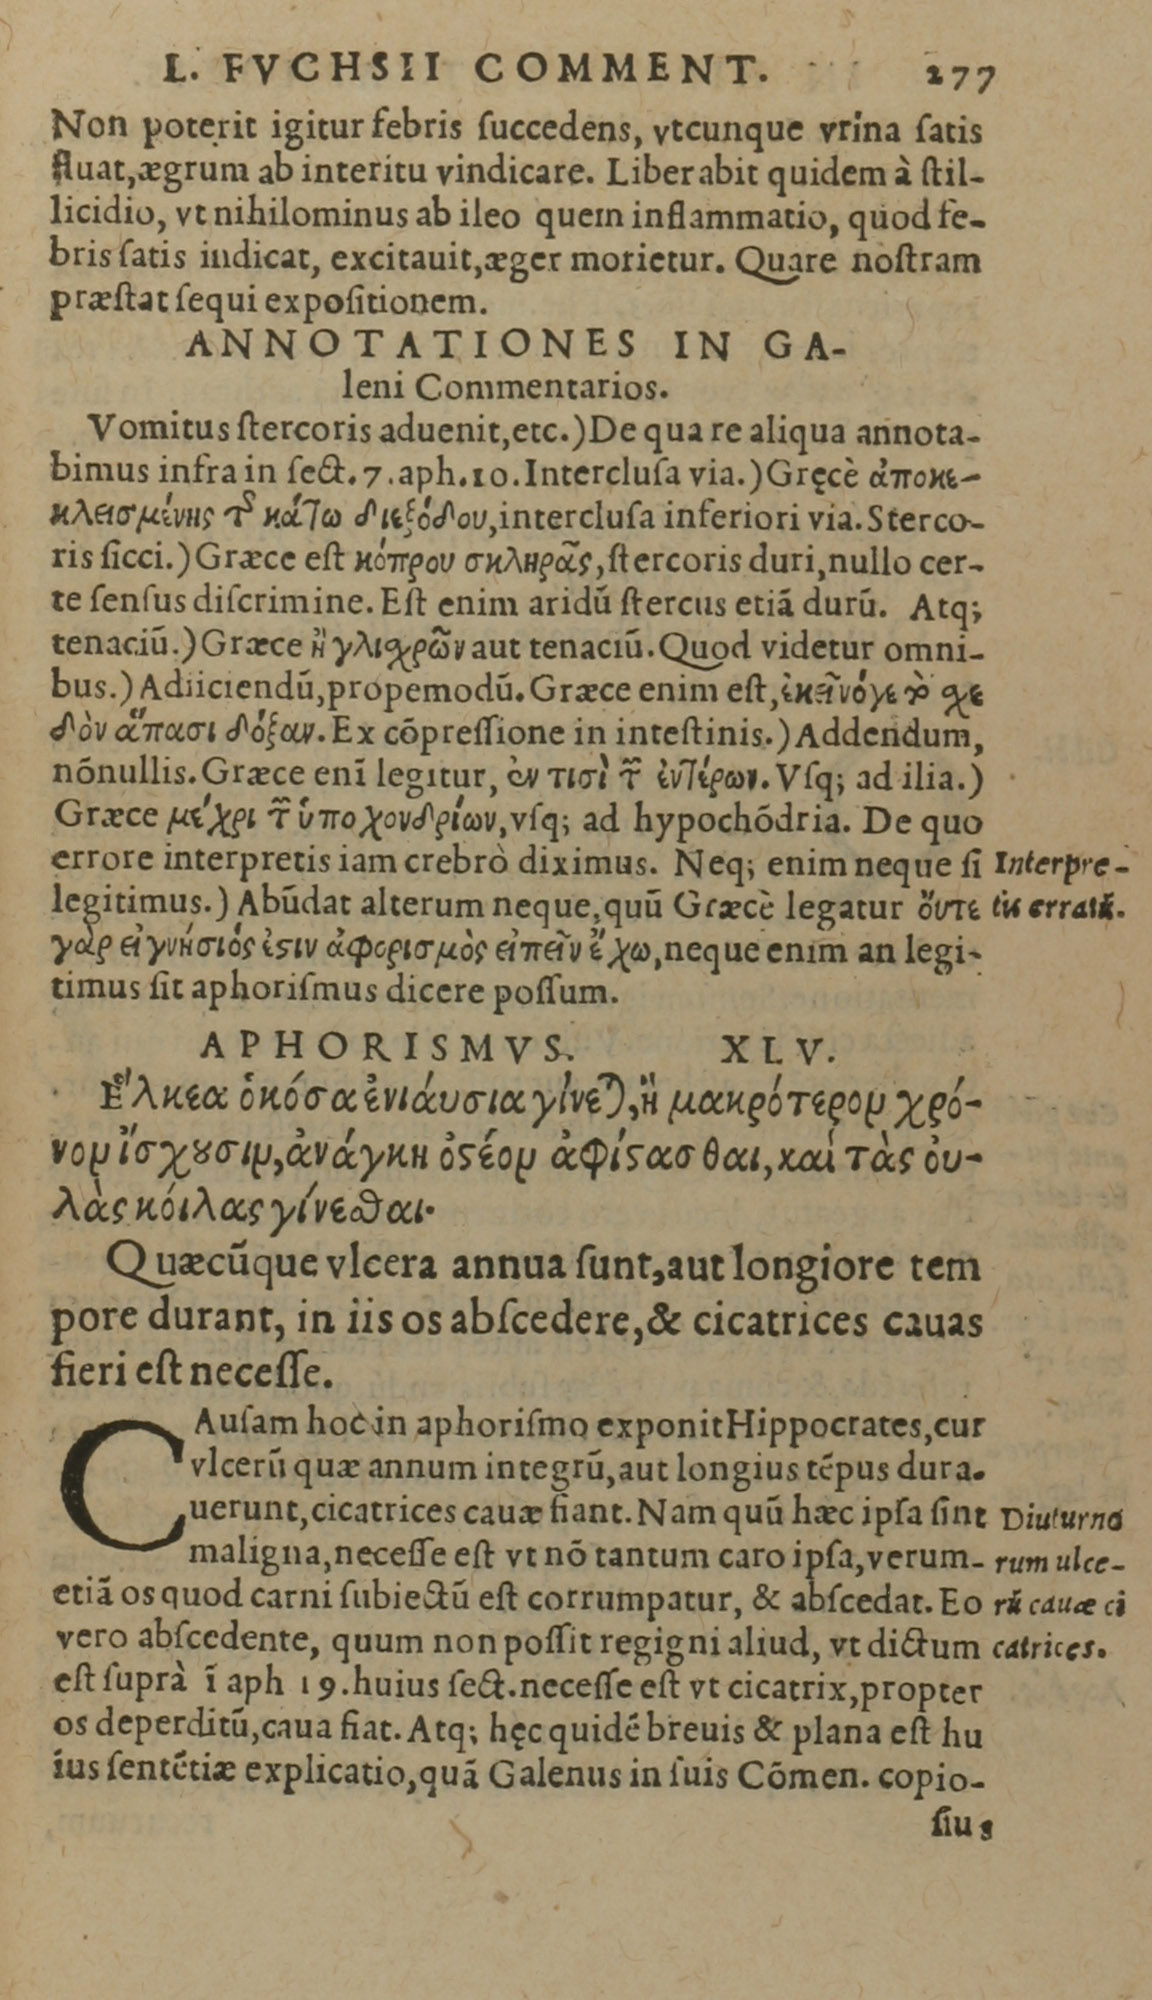 L. FVCHSII COMMENT. 277
Non poterit igitur febris succedens, vtcunque vrina satis
fluat, ægrum ab interitu vindicare. Liberabit quidem à stil-
licidio, vt nihilominus ab ileo quem inflammatio, quod fe-
bris satis indicat, excitauit, æger morietur. Quare nostram
præstat sequi expositionem.
ANNOTATIONES IN GA-
leni Commentarios.
Vomitus stercoris aduenit, etc.) De qua re aliqua annota-
bimus infra in sect. 7. aph. 10. Interclusa via.) Gręcè ἀποκε-
κλεισμένης τῆς κάτω διεξόδου, interclusa inferiori via. Sterco-
ris sicci.) Græce est κόπρου σκληρᾶς, stercoris duri, nullo cer-
te sensus discrimine. Est enim aridũ stercus etiã durũ. Atq;
tenaciũ.) Græce ἢ γλιχρῶν aut tenaciũ. Quod videtur omni-
bus.) Adiiciendũ, propemodũ. Græce enim est, ἐκεῖνόγε τὸ χε
δὸν ἅπασι δόξαν. Ex cõpressione in intestinis.) Addendum,
nõnullis. Græce enĩ legitur, ἐν τισὶ τῶν ἐντέρων. Vsq; ad ilia.)
Græce μέχρι τῶν ὑποχονδρίων, vsq; ad hypochõdria. De quo
errore interpretis iam crebrò diximus. Neq; enim neque si Interpre-
legitimus.) Abũdat alterum neque, quũ Græcè legatur ὄυτε tis errata.
γὰρ εἰ γνήσιός ἐστιν ἀφορισμὸς εἰπεῖν ἔχω, neque enim an legi-
timus sit aphorismus dicere possum.
APHORISMVS. XLV.
Ἕλκεα ὁκόσα ἐνιάυσια γίνεται, ἢ μακρότερον χρό-
νον ἴσχουσιν, ἀνάγκη ὀστέον ἀφίστασθαι, καὶ τὰς ὀυ-
λὰς κόιλας γίνεσθαι.
Quæcũque vlcera annua sunt, aut longiore tem
pore durant, in iis os abscedere, & cicatrices cauas
fieri est necesse.
CAusam hoc in aphorismo exponit Hippocrates, cur
vlcerũ quæ annum integrũ, aut longius tẽpus dura-
uerunt, cicatrices cauæ fiant. Nam quũ hæc ipsa sint Diuturno
maligna, necesse est vt nõ tantum caro ipsa, verum- rum ulce-
etiã os quod carni subiectũ est corrumpatur, & abscedat. Eo rũ cauæ ci
vero abscedente, quum non possit regigni aliud, vt dictum catrices.
est suprà ĩ aph 19. huius sect. necesse est vt cicatrix, propter
os deperditũ, caua fiat. Atq; hęc quidẽ breuis & plana est hu
ius sentẽtiæ explicatio, quã Galenus in suis Cõmen. copio-
sius